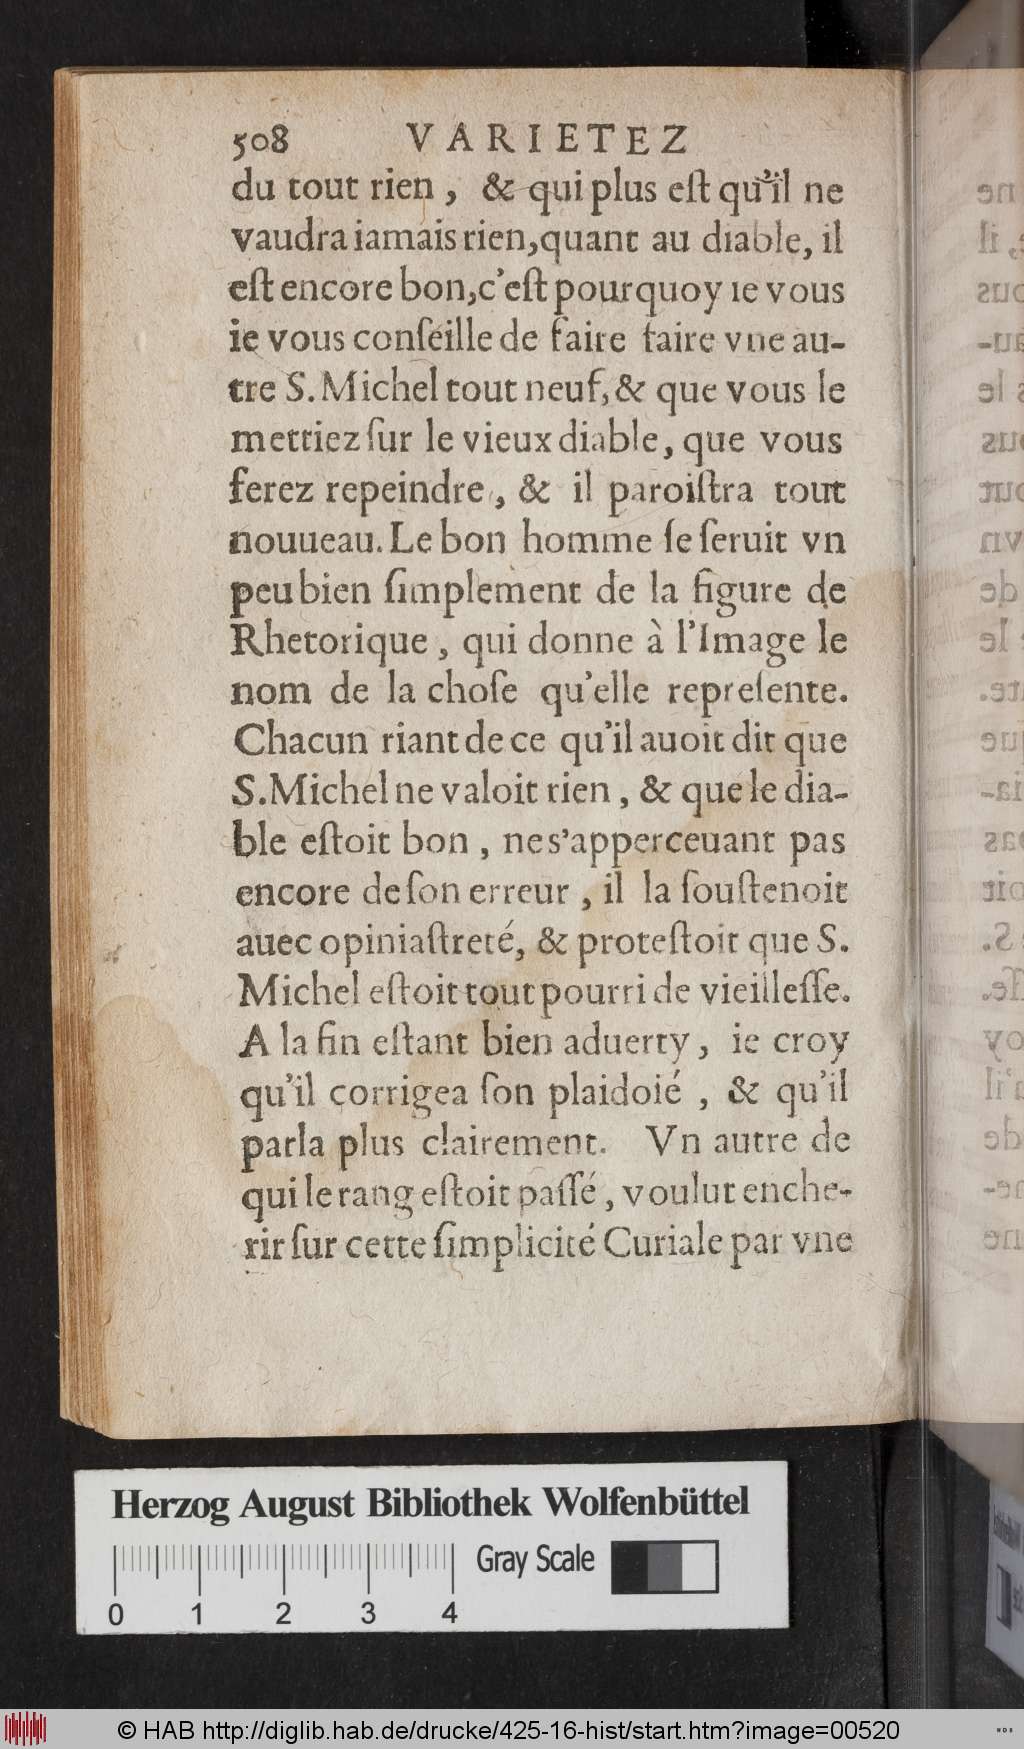 508 VARIETEZ
du tout rien, & qui plus eſt qu'il ne
vaudra iamais rien, quant au diable, il
eſt encore bon, c'eſt pourquoy ie vous
ie vous conſeille de faire faire vne au-
tre S. Michel tout neuf, & que vous le
mettiez ſur le vieux diable, que vous
ferez repeindre, & il paroiſtra tout
nouueau. Le bon homme ſe ſeruit vn
peu bien ſimplement de la figure de
Rhetorique, qui donne à l'Image le
nom de la choſe qu'elle repreſente.
Chacun riant de ce qu'il auoit dit que
S. Michel ne valoit rien, & que le dia-
ble eſtoit bon, ne s'apperceuant pas
encore de ſon erreur, il la ſouſtenoit
auec opiniaſtreté, & proteſtoit que S.
Michel eſtoit tout pourri de vieilleſſe.
A la fin eſtant bien aduerty, ie croy
qu'il corrigea ſon plaidoié, & qu'il
parla plus clairement. Vn autre de
qui le rang eſtoit paſſé, voulut enche-
rir ſur cette ſimplicité Curiale par vne
Herzog August Bibliothek Wolfenbüttel
Gray Scale
0 1 2 3 4
© HAB http://diglib.hab.de/drucke/425-16-hist/start.htm?image=00520